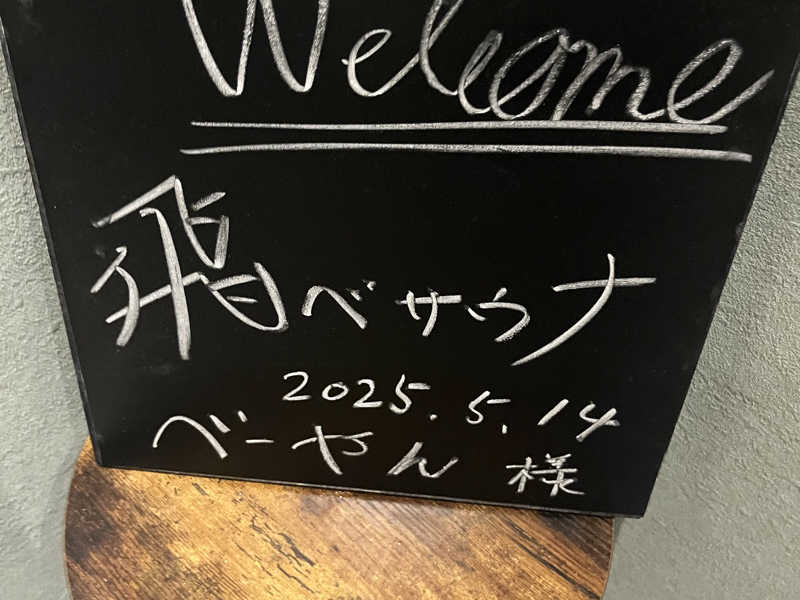 Welcome
飛べサウナ
2025.5.14
べーやん 様